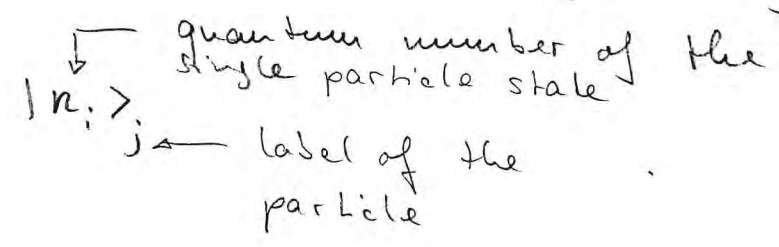 quantum number of the
single particle state
|n_i>_j
label of the
particle